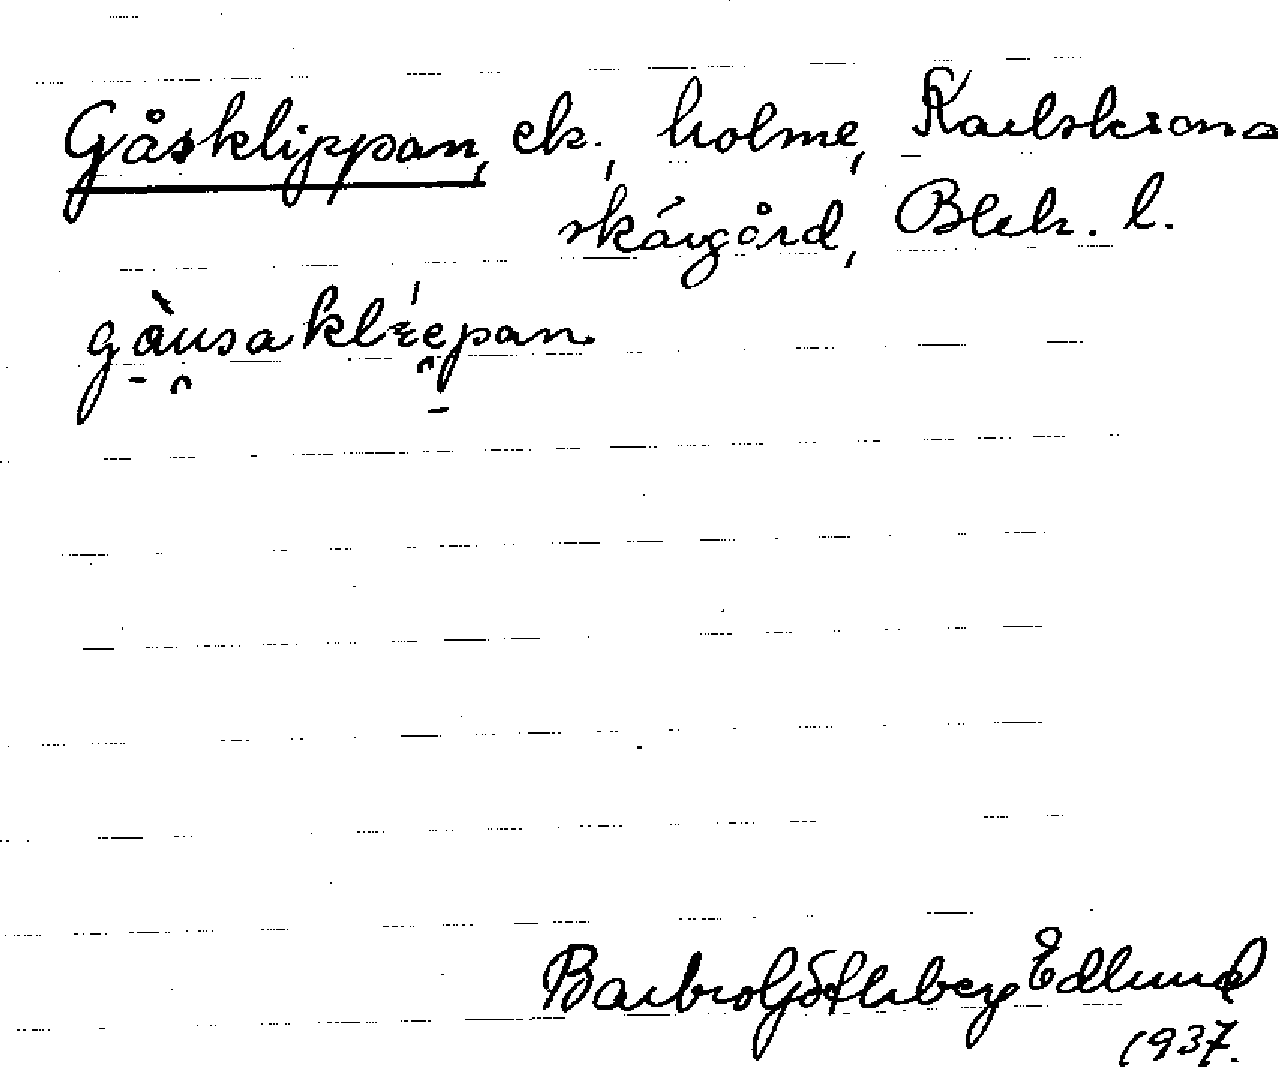 Gåsklippan, ek., holme, Karlskrona
skärgård, Blek. l.
gàusaklépan
Barbro Götleberg Edlund
1937.